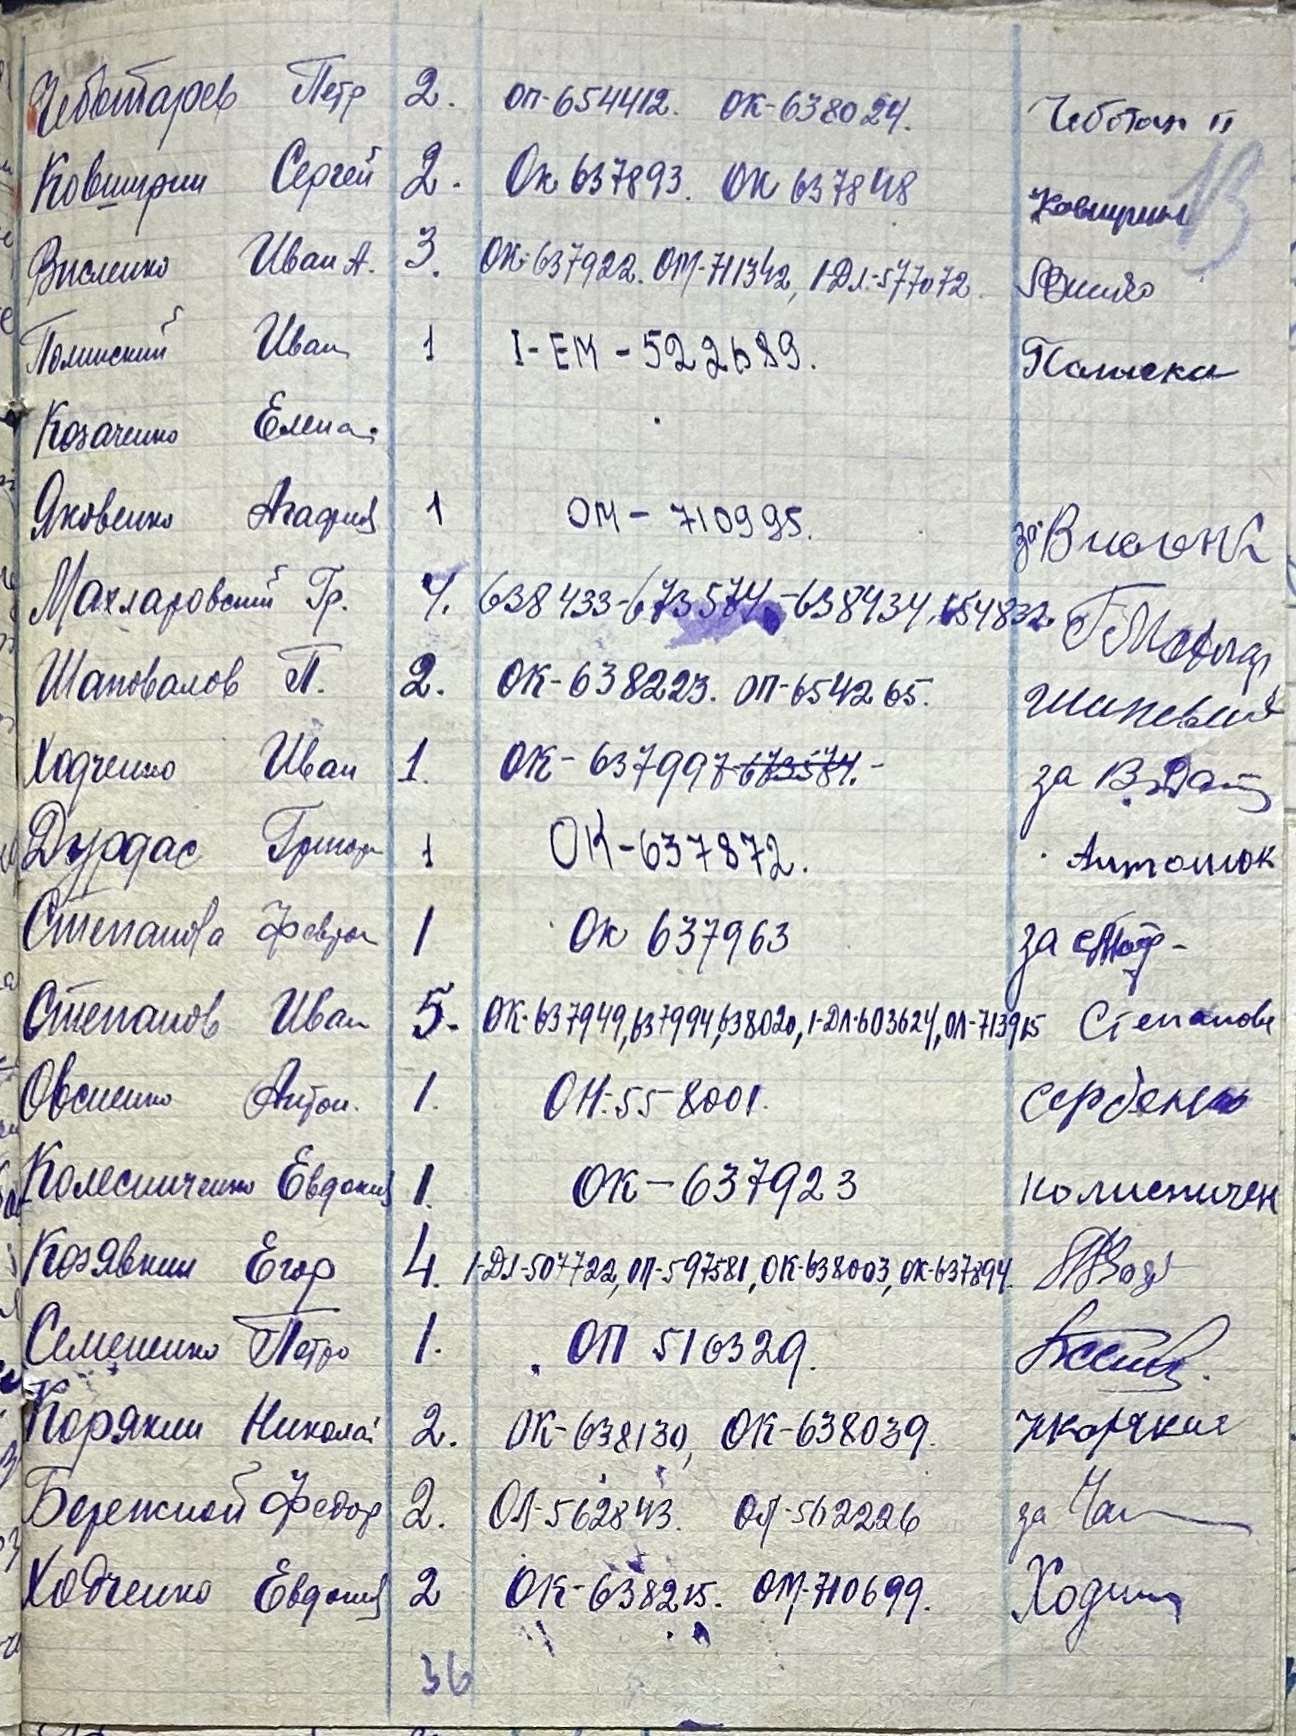 Чеботарев Петр 2. ОП-654412. ОК-638024. Чеботар П
13
Ковширин Сергей 2. ОК 637893. ОК 637848 Ковширин
Висленко Иван А. 3. ОК-637922. ОМ-711342, 1-ДЛ-577072
Полинский Иван 1 I-ЕМ-522689. Полинска
Козаченко Елена.
Яковенко Агафия 1 ОМ-710995. за
Махларовский Гр. 4. 638433-673574-638434, 654832. ГМахлар
Шаповалов П. 2. ОК-638223. ОП-654265. Шаповал
Ходченко Иван 1. ОК-637997-673574.- за
Дурдас Григор 1 ОК-637872. Антонюк
Степанова Феврон 1 ОК 637963 за
Степанов Иван 5. ОК-637949, 637994, 638020, 1-ДЛ-603624, ОЛ-713915 Степанов
Овсиенко Антон. 1. ОН-558001. Сербен
Колесниченко Евдокия 1. ОК-637923 Колисничен
Козявкин Егор 4. 1-ДЛ-507722, ОП-597581, ОК-638003, ОК-637894.
Семененко Петро 1. ОП 516329.
Корякин Николай 2. ОК-638130, ОК-638039. Нкорякин
Бережной Федор 2. ОЛ-562843. ОЛ-562226 за
Ходченко Евдокия 2 ОК-638215. ОМ-710699.
36